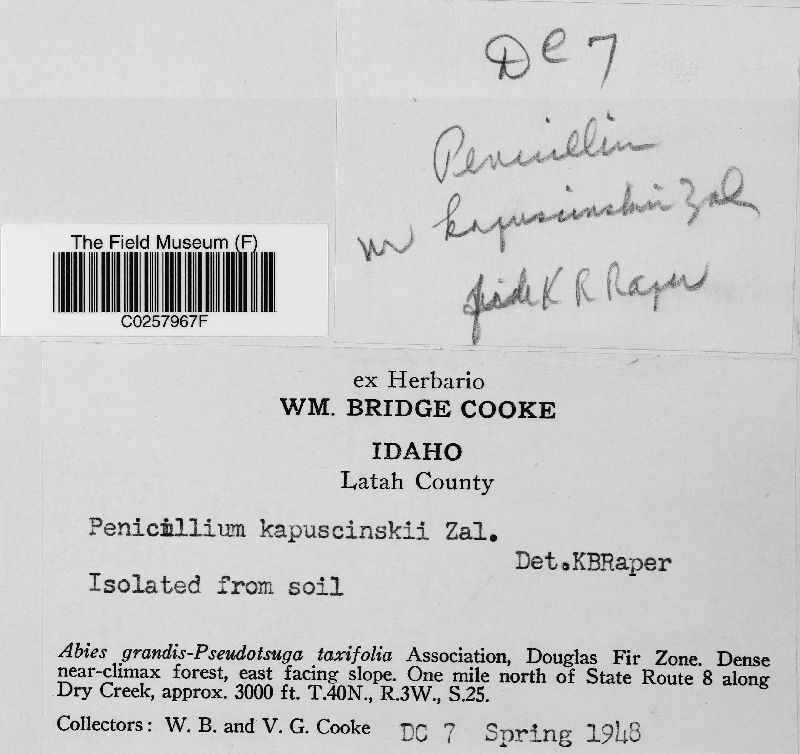 DC 7
Penicillin
nr kapuscinskii Zal
fide K R Raper
The Field Museum (F)
C0257967F
ex Herbario
WM. BRIDGE COOKE
IDAHO
Latah County
Penicillium kapuscinskii Zal.
Det.KBRaper
Isolated from soil
Abies grandis-Pseudotsuga taxifolia Association, Douglas Fir Zone. Dense
near-climax forest, east facing slope. One mile north of State Route 8 along
Dry Creek, approx. 3000 ft. T.40N., R.3W., S.25.
Collectors: W. B. and V. G. Cooke DC 7 Spring 1948